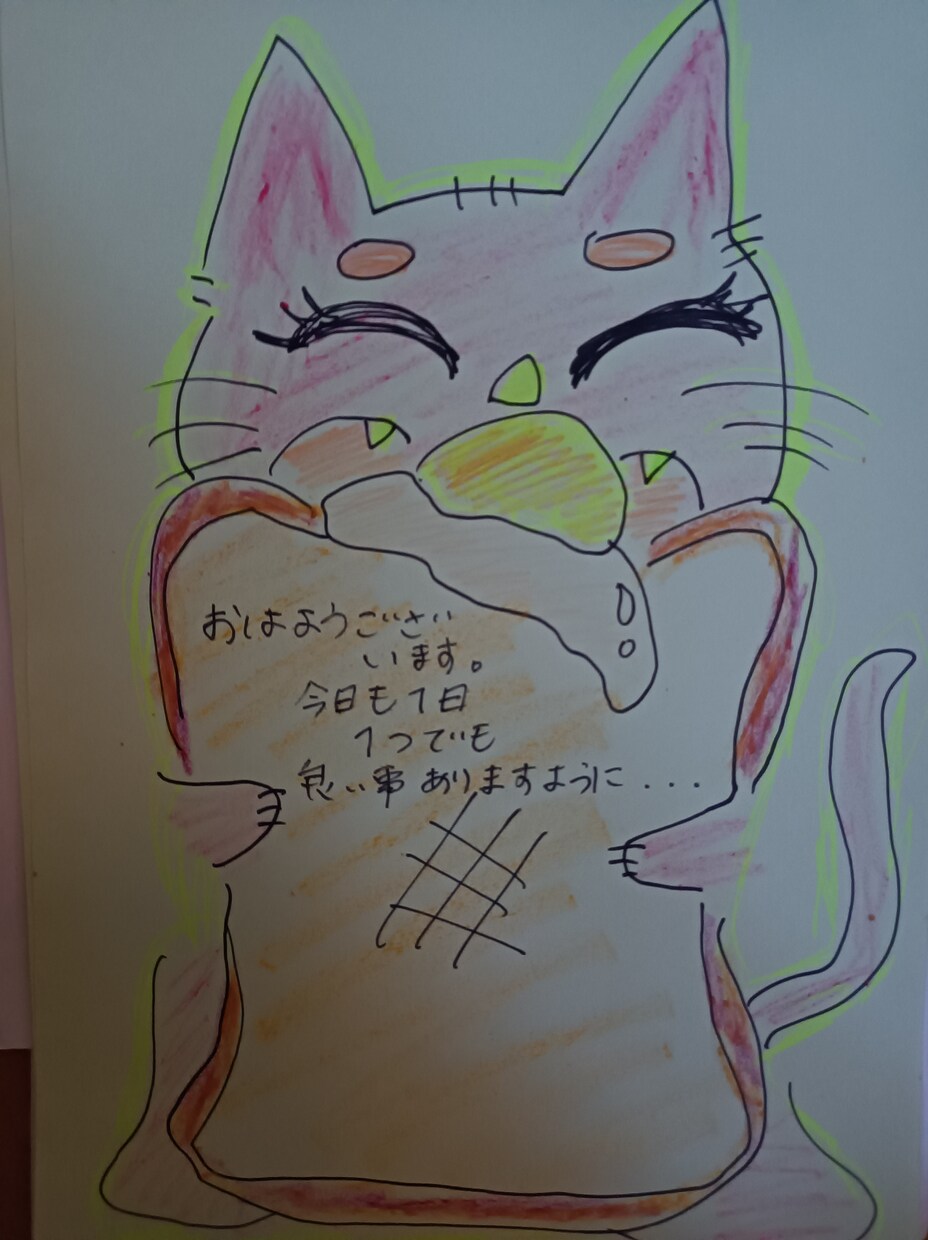 おはようござい
います。
今日も1日
1つでも
良い事ありますように...